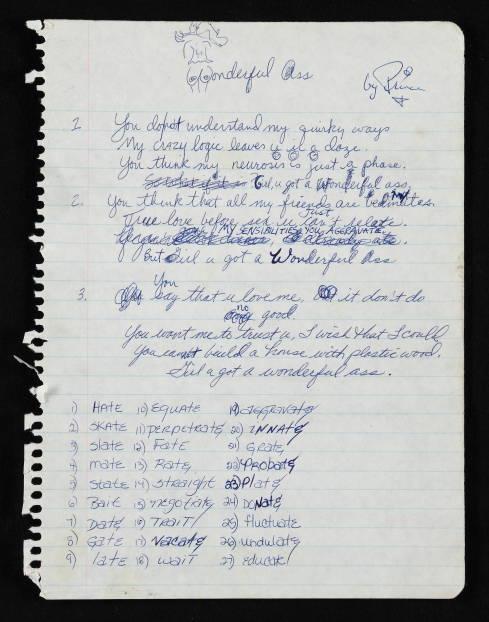 Wonderful Ass
by Prince
1. You donot understand my quirky ways
My crazy logic leaves u in a daze.
You think my neurosis is just a phase.
Girl, u got a Wonderful ass.
2. You think that all my friends are bedmates.
True love before sex u just can't relate.
MY SENSIBILITIES YOU AGGRAVATE.
But Girl u got a Wonderful Ass
3. You say that u love me, it don't do
no good.
You want me to trust u, I wish that I could,
You cannot build a house with plastic wood.
Girl u got a wonderful ass.
1) HATE 10) EQUATE 19) aggravate
2) SKATE 11) PERPETRATE 20) INNATE
3) Slate 12) FATE 21) GRATE
4) mate 13) RATE 22) PROBATE
5) State 14) STRAIGHT 23) PLATE
6) Bait 15) negotiate 24) DONATE
7) Date 16) TRAIT 25) fluctuate
8) GATE 17) VACATE 26) undulate
9) late 18) wait 27) educate